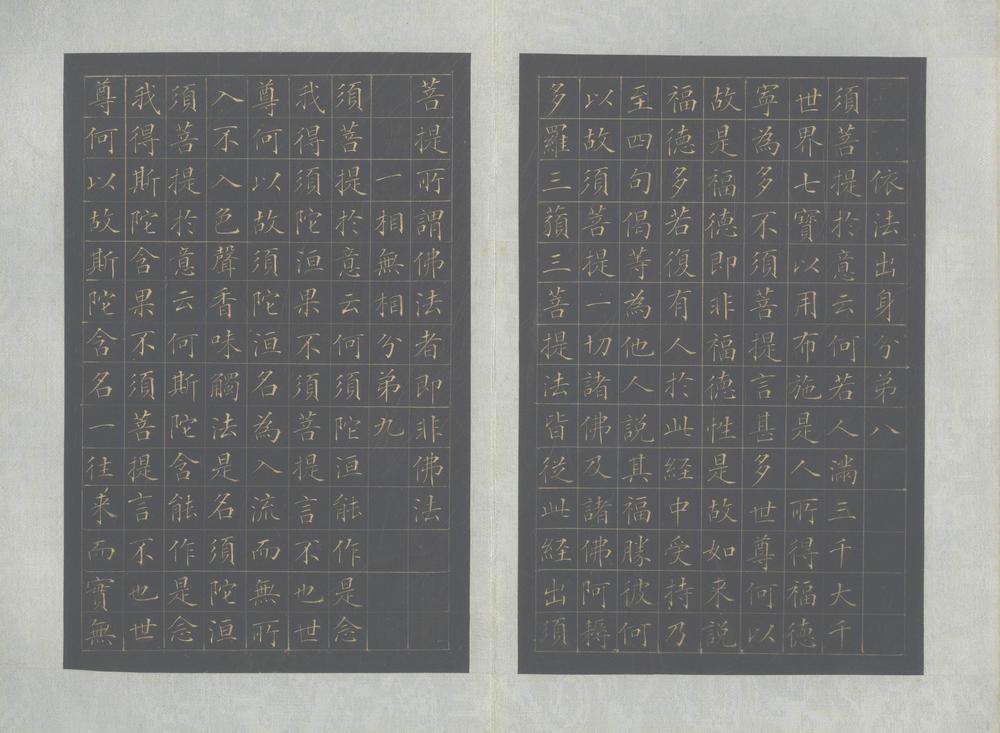 依法出身分弟八
須菩提於意云何若人滿三千大千
世界七寶以用布施是人所得福德
寧為多不須菩提言甚多世尊何以
故是福德即非福德性是故如来說
福德多若復有人於此經中受持乃
至四句偈等為他人說其福勝彼何
以故須菩提一切諸佛及諸佛阿耨
多羅三藐三菩提法皆從此經出須
菩提所謂佛法者即非佛法
一相無相分弟九
須菩提於意云何須陀洹能作是念
我得須陀洹果不須菩提言不也世
尊何以故須陀洹名為入流而無所
入不入色聲香味觸法是名須陀洹
須菩提於意云何斯陀含能作是念
我得斯陀含果不須菩提言不也世
尊何以故斯陀含名一往来而實無